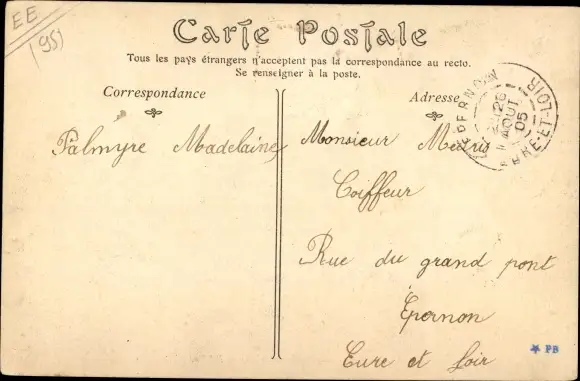 EE
(95)
Carte Postale
Tous les pays étrangers n'acceptent pas la correspondance au recto.
Se renseigner à la poste.
Correspondance
Adresse
26
AOUT
05
EURE-ET-LOIR
Palmyre Madelaine
Monsieur
Coiffeur
Rue du grand pont
Epernon
Eure et Loir
PB